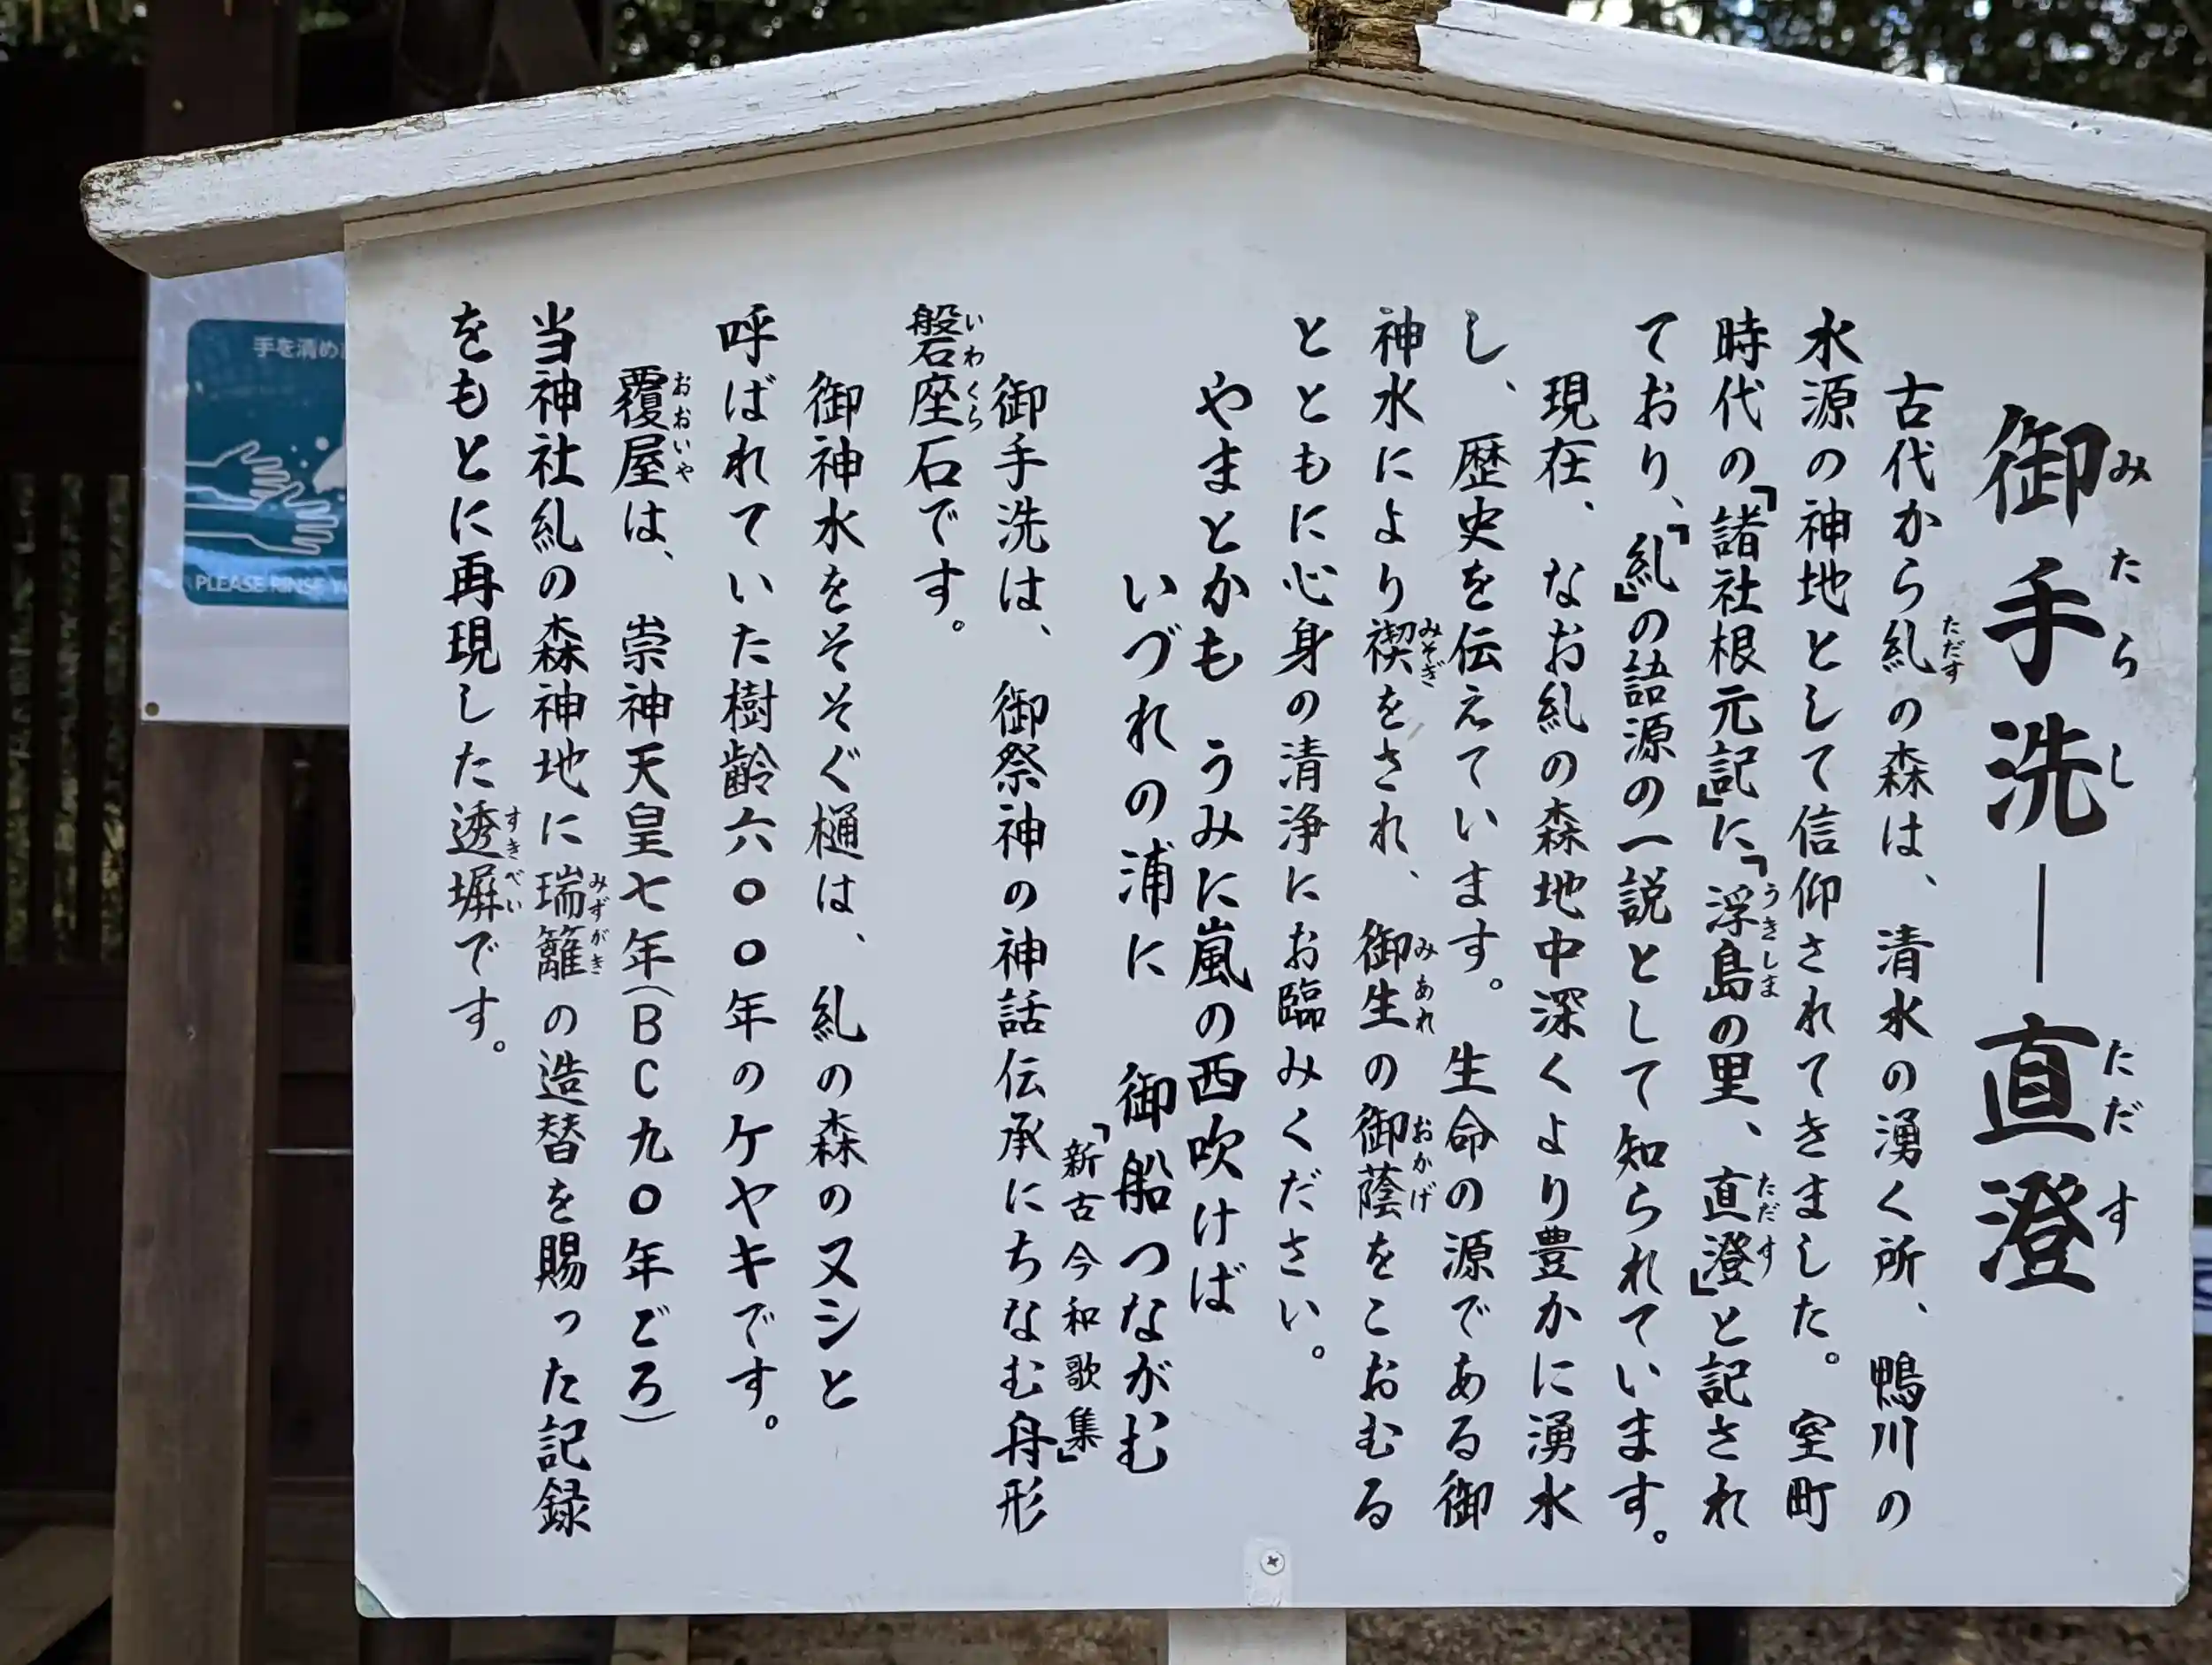 御手洗―直澄
みたらし
ただす
古代から糺の森は、清水の湧く所、鴨川の
ただす
水源の神地として信仰されてきました。室町
時代の「諸社根元記」に「浮島の里、直澄」と記され
うきしま
ただす
ており、「糺」の語源の一説として知られています。
現在、なお糺の森地中深くより豊かに湧水
し、歴史を伝えています。生命の源である御
神水により禊をされ、御生の御蔭をこおむる
みそぎ
みあれ
おかげ
とともに心身の清浄にお臨みください。
やまとかも うみに嵐の西吹けば
いづれの浦に 御船つながむ
「新古今和歌集」
御手洗は、御祭神の神話伝承にちなむ舟形
磐座石です。
いわくら
御神水をそそぐ樋は、糺の森のヌシと
呼ばれていた樹齢六〇〇年のケヤキです。
覆屋は、崇神天皇七年(BC九〇年ごろ)
おおいや
当神社糺の森神地に瑞籬の造替を賜った記録
みずがき
をもとに再現した透塀です。
すきべい
手を清め
PLEASE RINSE